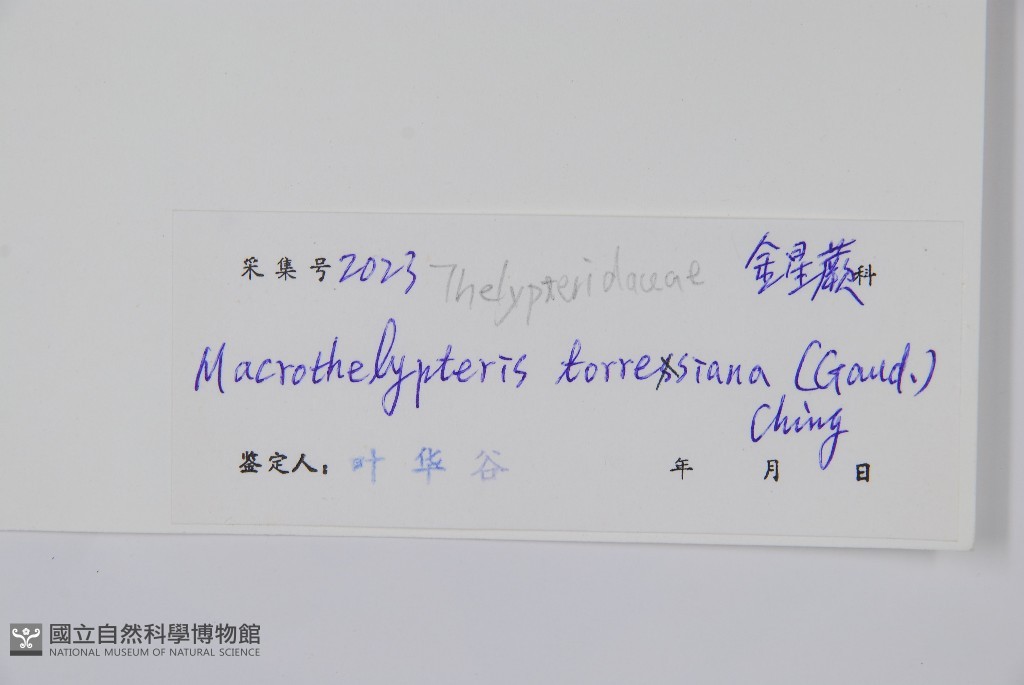 采集号 2023 Thelypteridaceae 金星蕨科
Macrothelypteris torresiana (Gaud.)
Ching
鉴定人：叶华谷 年 月 日
國立自然科學博物館
NATIONAL MUSEUM OF NATURAL SCIENCE